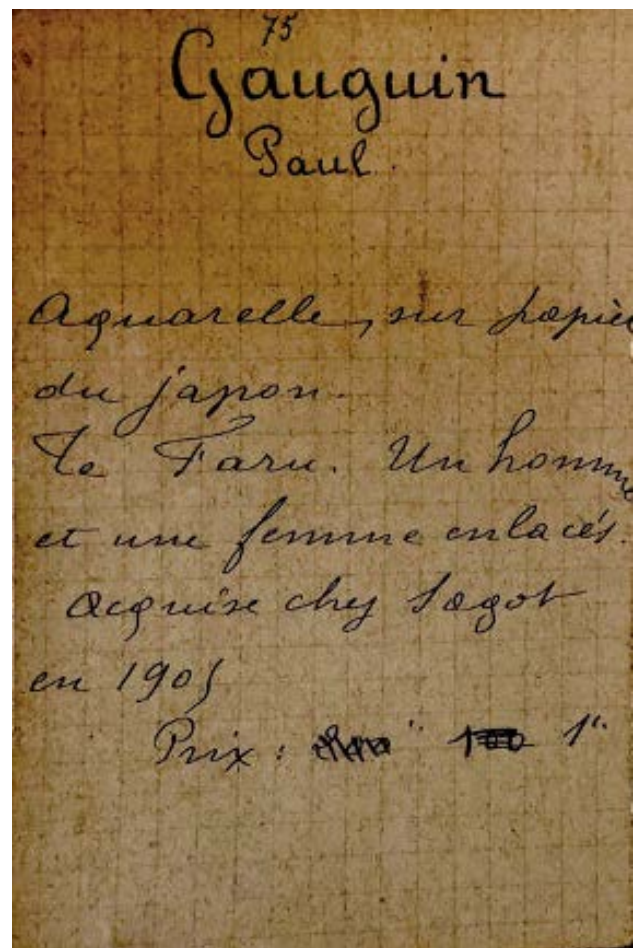 75
Gauguin
Paul.
Aquarelle, sur papier
du japon.
Te Faru. Un homme
et une femme enlacés.
Acquise chez Sagot
en 1905
Prix :